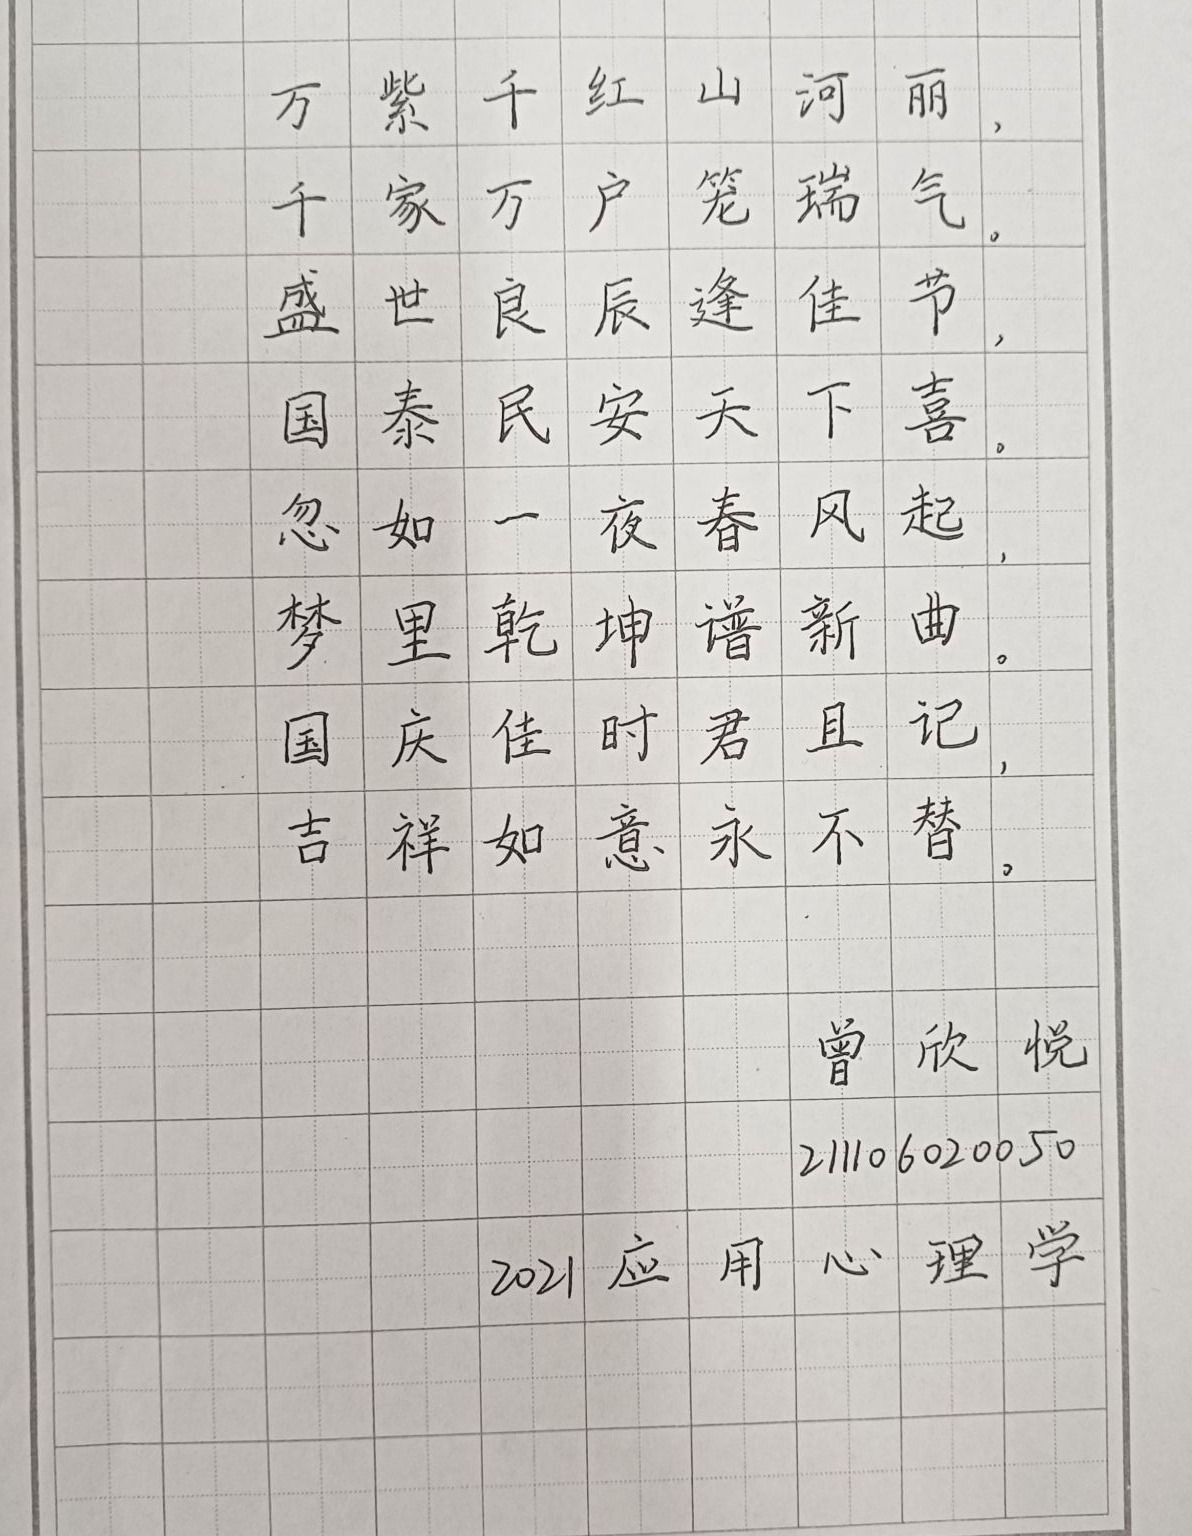 万紫千红山河丽,
千家万户笼瑞气。
盛世良辰逢佳节,
国泰民安天下喜。
忽如一夜春风起,
梦里乾坤谱新曲。
国庆佳时君且记,
吉祥如意永不替。
曾欣悦
211106020050
2021应用心理学